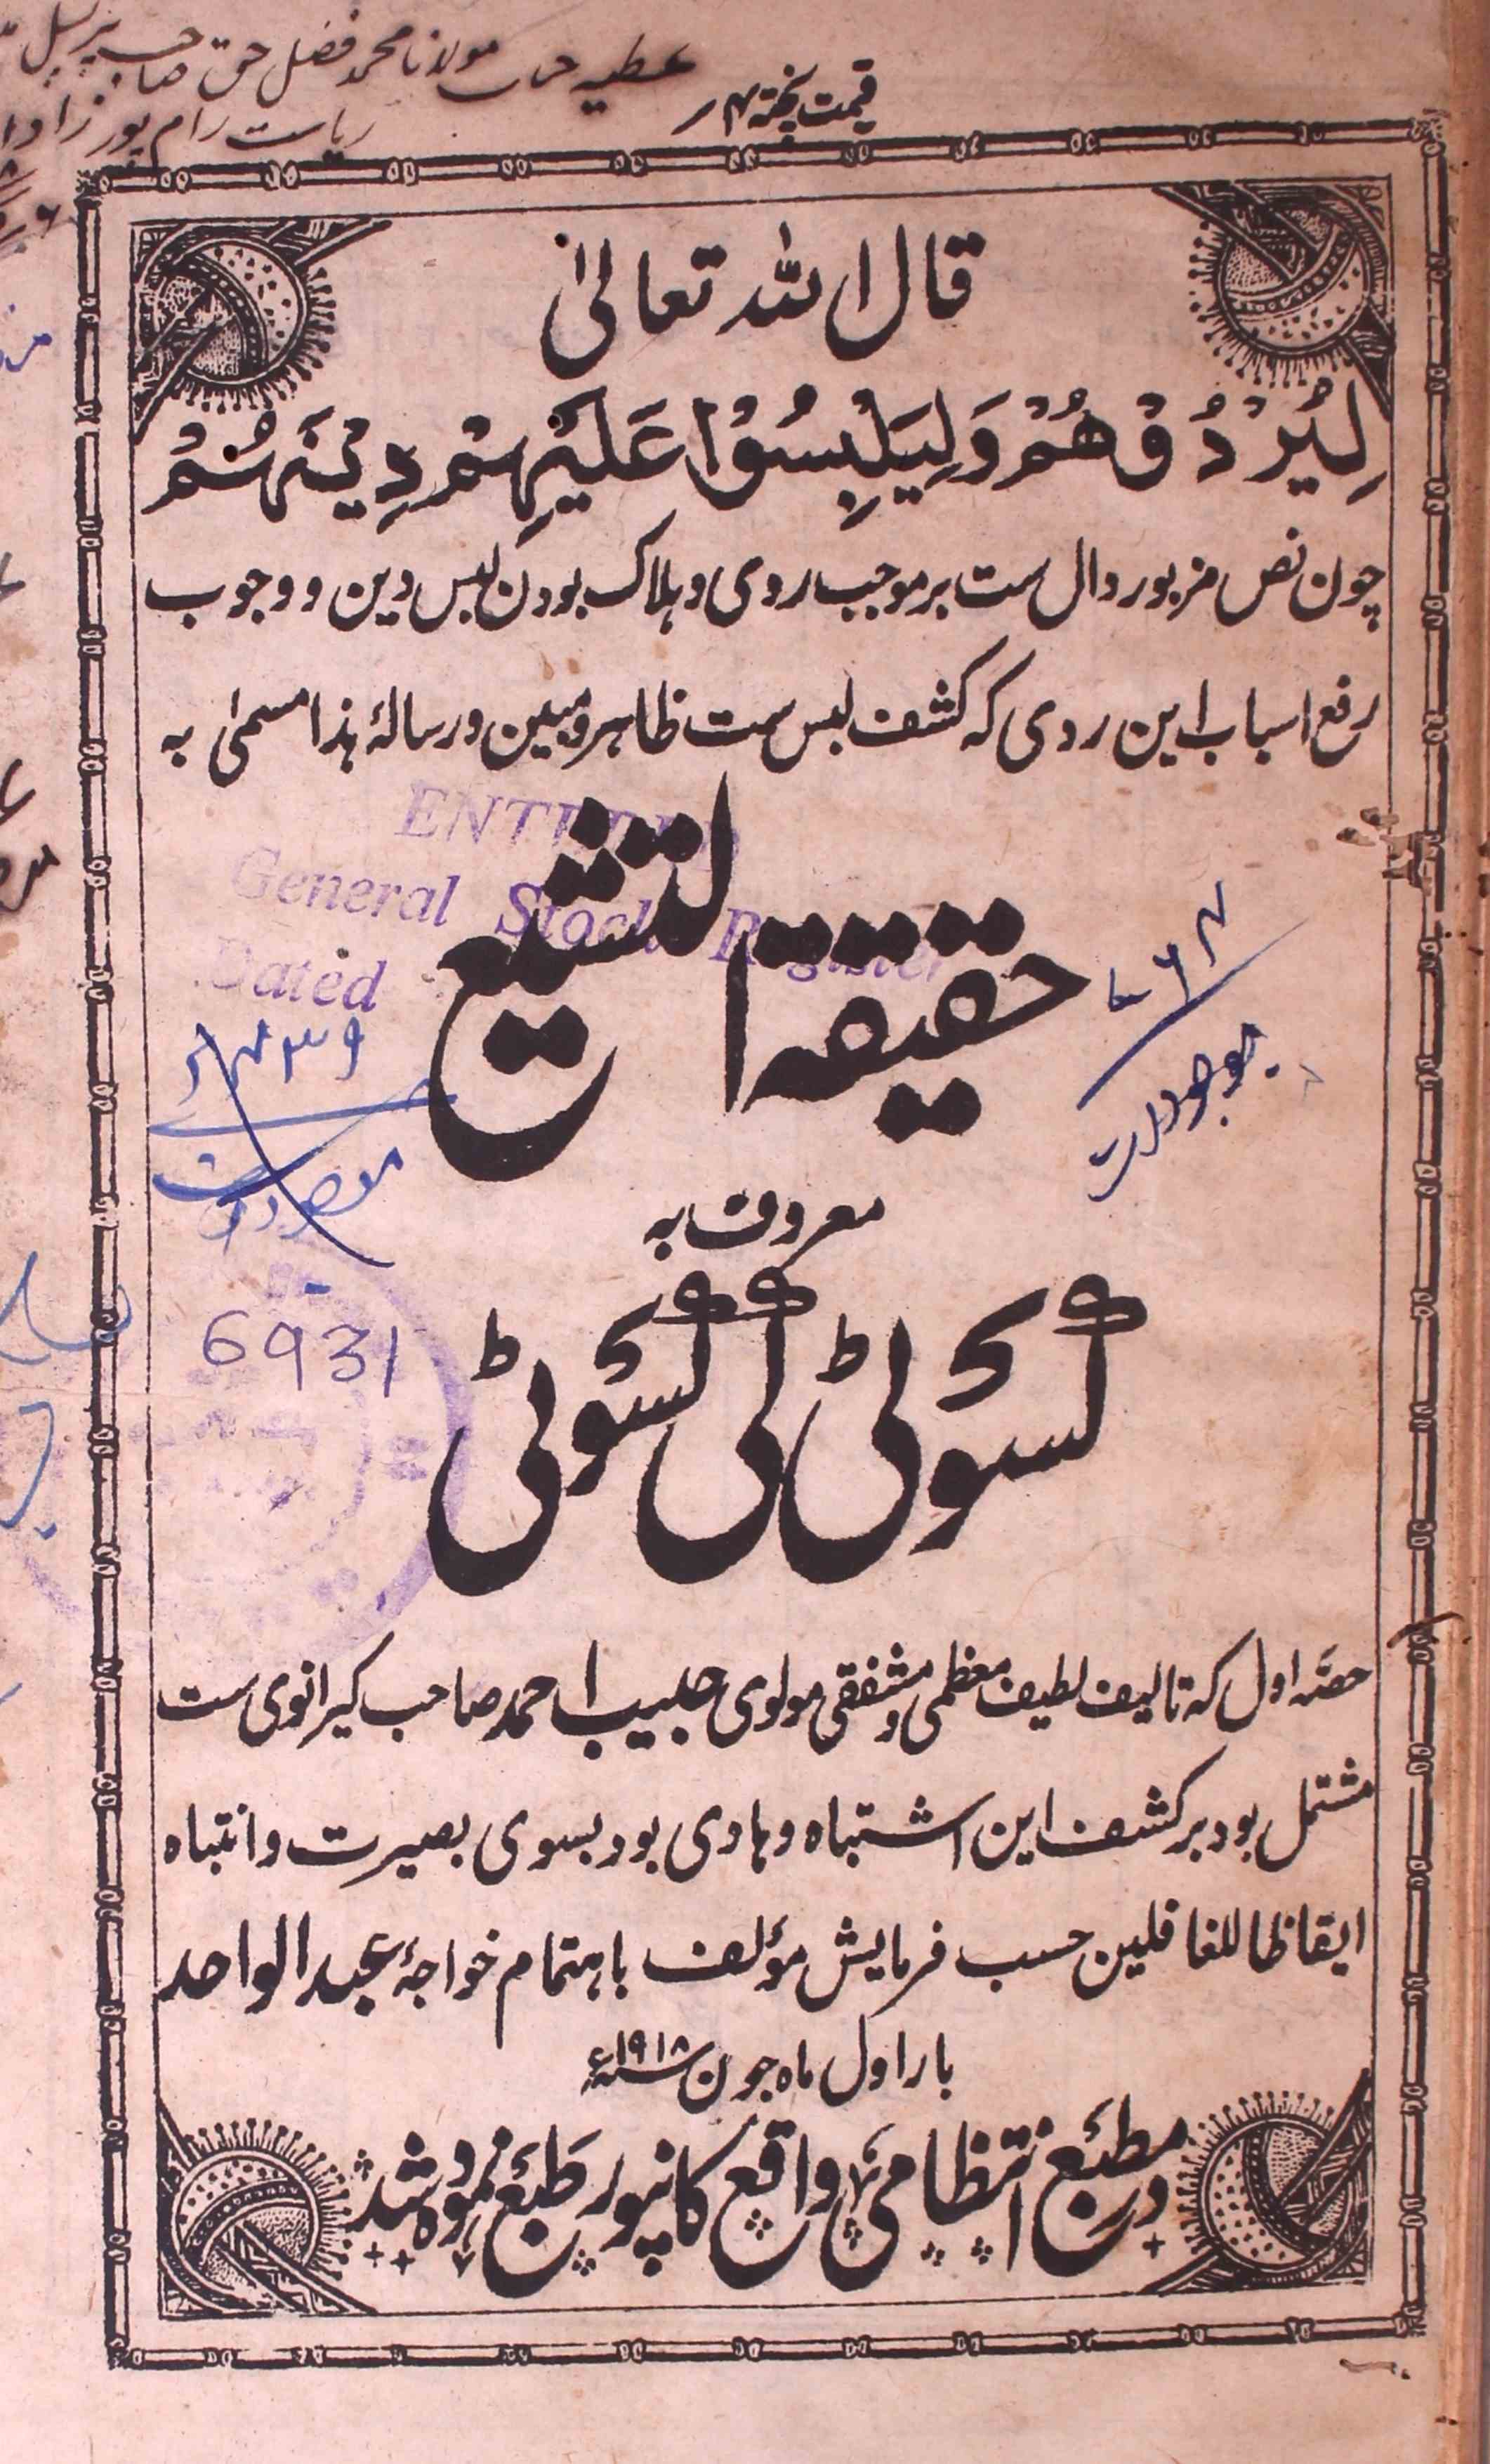 عطیہ حضرت مولانا محمد فضل حق صاحب پرنسپل
ریاست رام پور
قیمت پختہ ۴ر
قال اللہ تعالیٰ
لِیُرْدُوْهُمْ وَلِیَلْبِسُوْا عَلَیْهِمْ دِیْنَهُمْ
چون نص مزبور دال ست بر موجب ردی و ہلاک بودن لبس دین و وجوب
رفع اسباب این ردی کہ کشف لبس ست ظاہر و مبین و رسالۂ ہذا مسمیٰ بہ
ENTERED
General Stock Register
Dated
حقیقۃ التشیع
۷۶۴
معروف بہ
کسوٹی کی کسوٹی
6931
حصّہ اول کہ تالیف لطیف معظمی و مشفقی مولوی حبیب احمد صاحب کیرانوی ست
مشتمل بود بر کشف این اشتباہ و ہادی بود بسوی بصیرت و انتباہ
ایقاظا للغافلین حسب فرمایش مؤلف باہتمام خواجۂ عبد الواحد
بار اول ماہ جون سنہ ۱۹۱۸ء
در مطبع انتظامی واقع کانپور طبع نمودہ شد